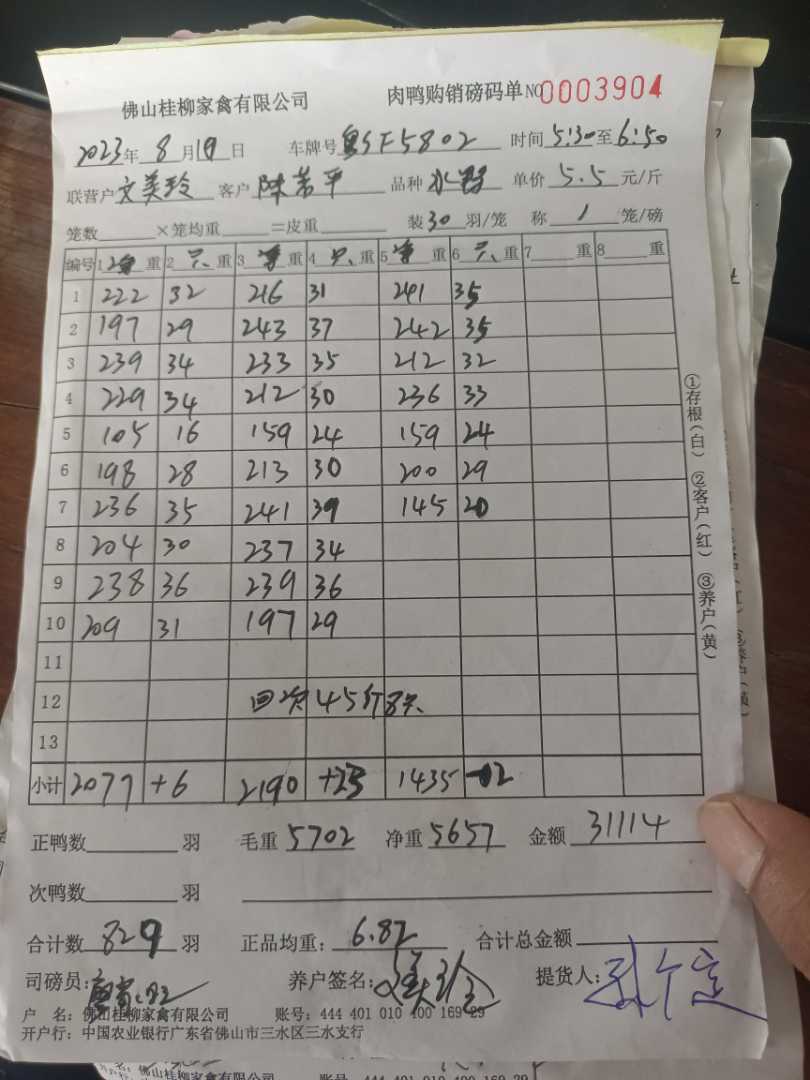 佛山桂柳家禽有限公司 肉鸭购销磅码单 NO 0003904
2023年 8月19日 车牌号 粤SF5802 时间 5:30至6:50
联营户 文美玲 客户 陈 平 品种 水 单价 5.5 元/斤
笼数 ×笼均重 =皮重 装30羽/笼 称 1 笼/磅
编号 1 重 2 只 重 3 重 4 只 重 5 重 6 只 重 7 重 8 重
1 222 32 216 31 241 35
2 197 29 243 37 242 35
3 239 34 233 35 212 32
4 229 34 212 30 236 33
5 105 16 159 24 159 24
6 198 28 213 30 200 29
7 236 35 241 39 145 20
8 204 30 237 34
9 238 36 239 36
10 209 31 197 29
11
12 回次45斤8只
13
小计 2077 +6 2190 +25 1435 -02
正鸭数 羽 毛重 5702 净重 5657 金额 31114
次鸭数 羽
合计数 829 羽 正品均重: 6.82 合计总金额
司磅员: 养户签名: 提货人:
户 名: 佛山桂柳家禽有限公司 账号: 444 401 010 400 169 29
开户行: 中国农业银行广东省佛山市三水区三水支行
①存根(白) ②客户(红) ③养户(黄)
佛山桂柳家禽有限公司 账号: 444 401 010 400 169 29